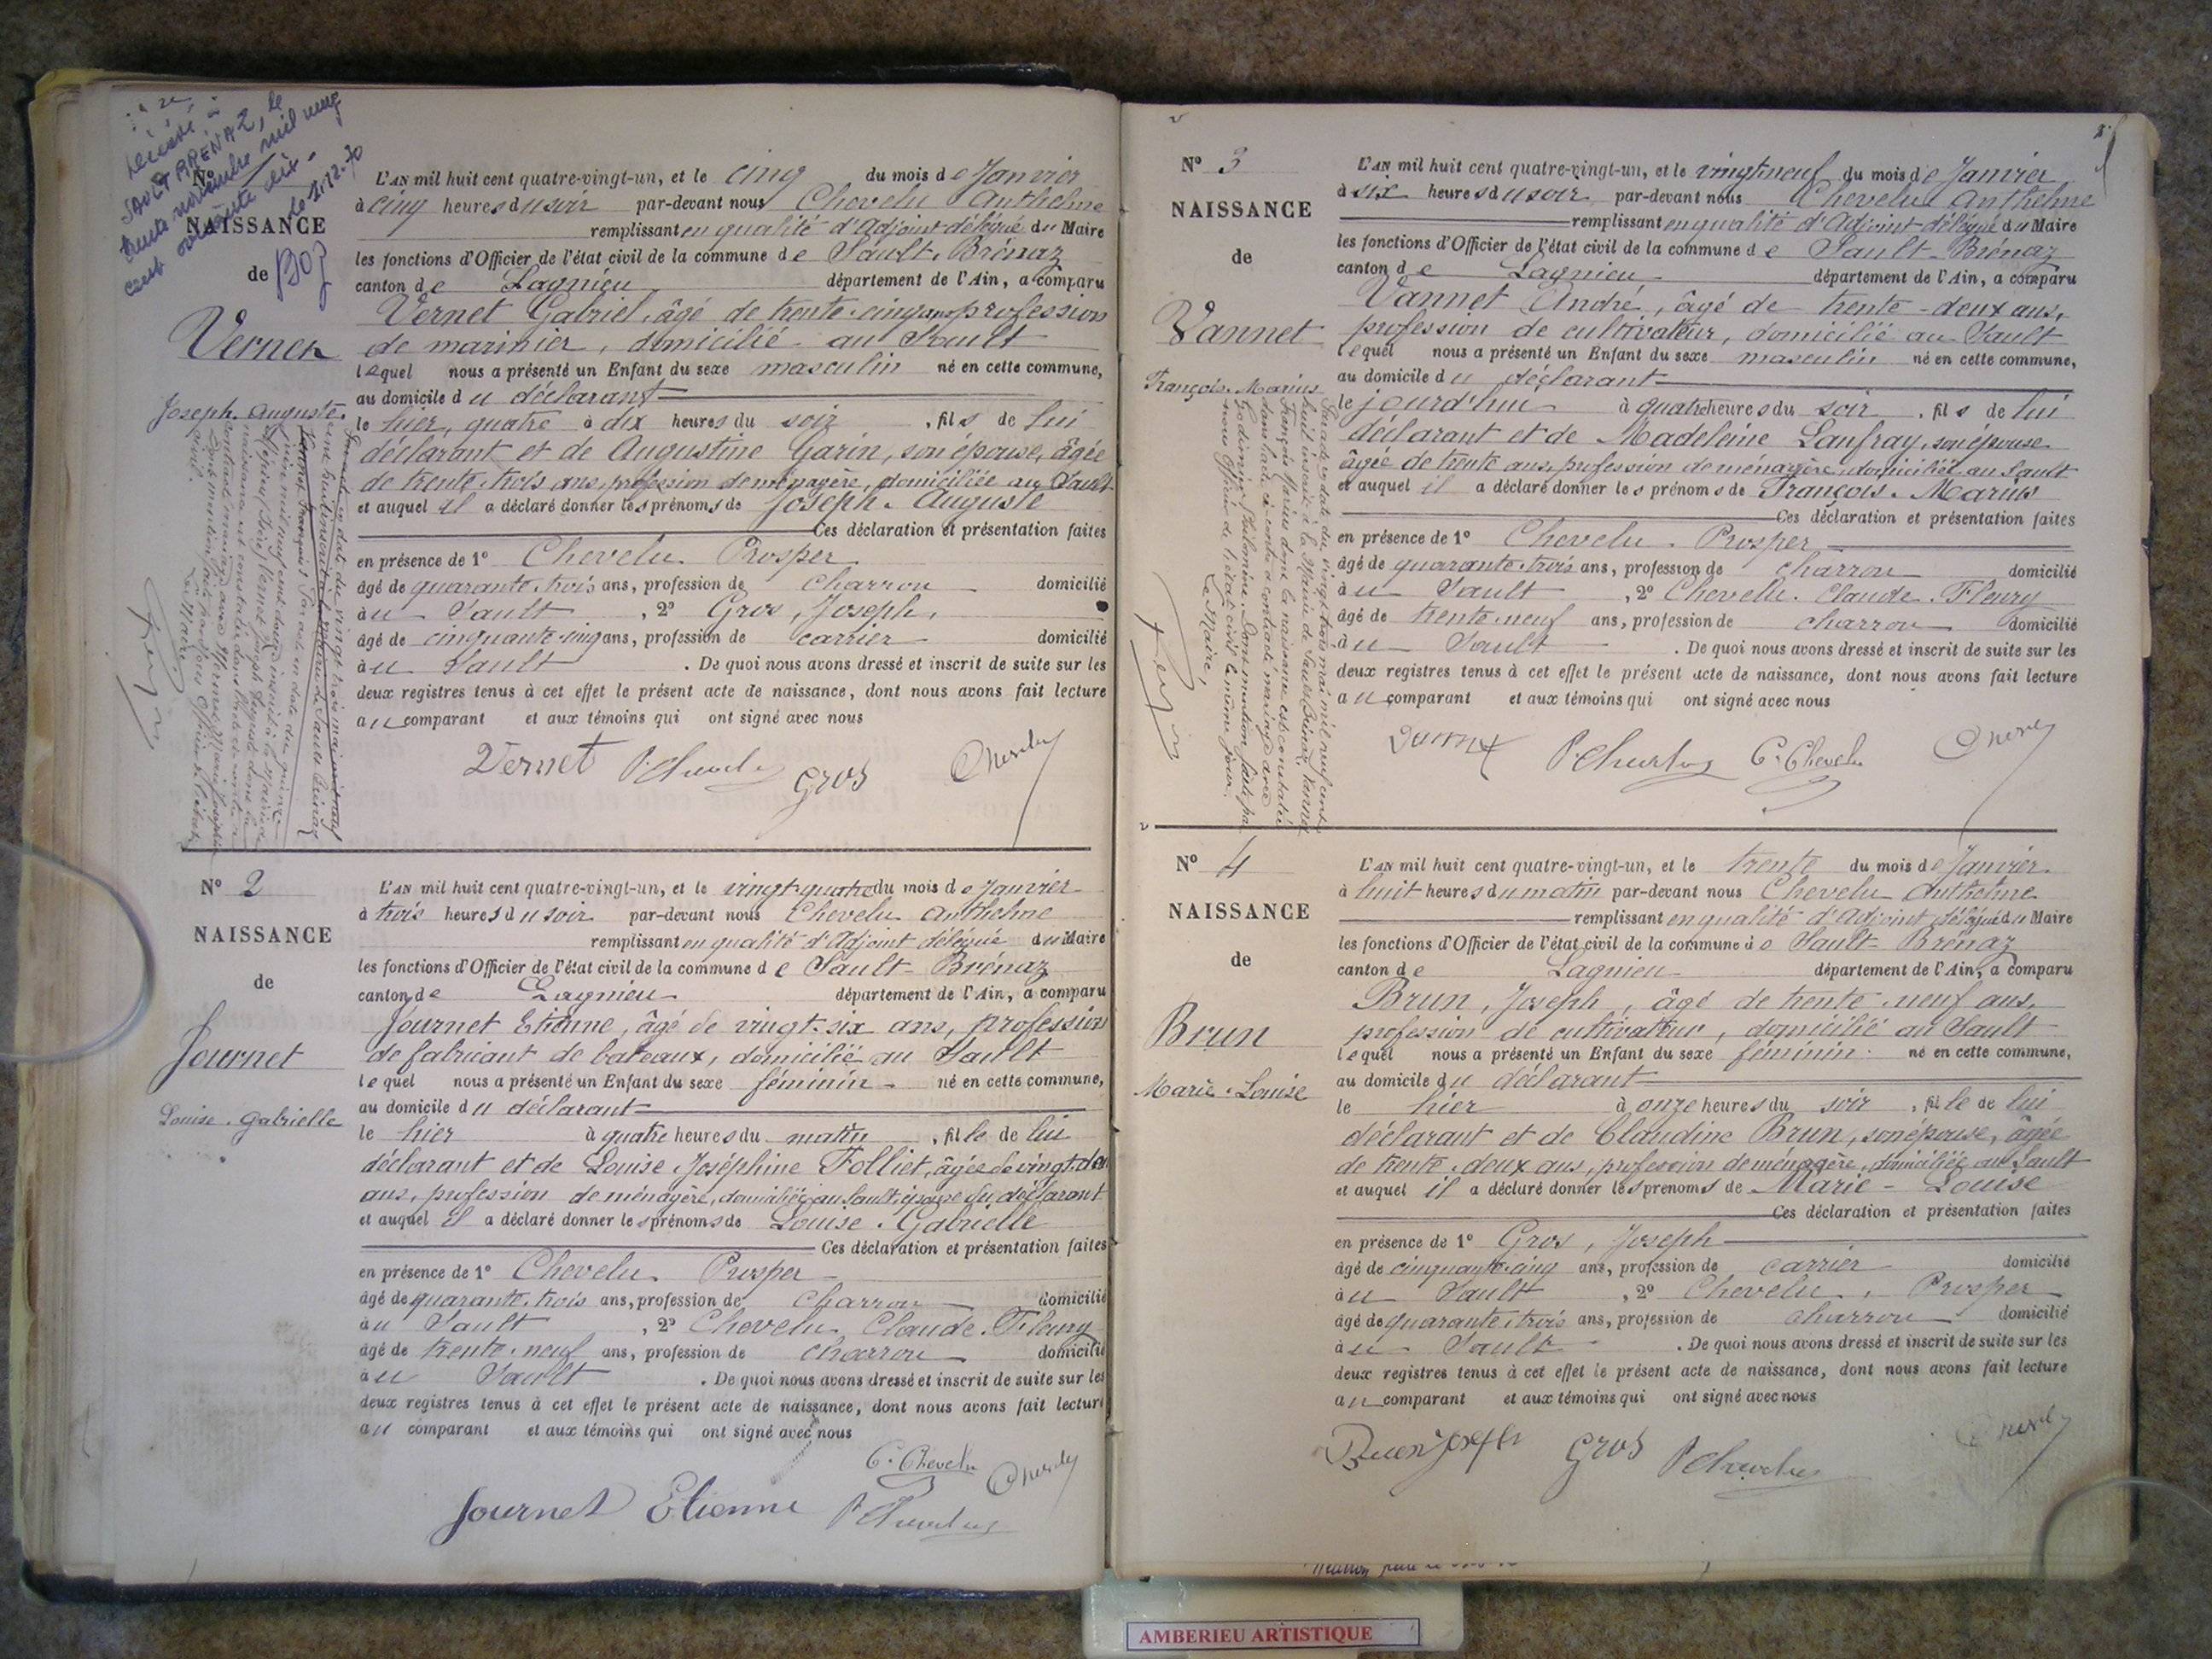 Décédé à
SAULT BRÉNAZ, le
trente novembre mil neuf
cent soixante dix
le 1.12.70
N° 1
NAISSANCE
de Boz
Vernet
Joseph. Auguste.
L'AN mil huit cent quatre-vingt-un, et le cinq du mois de Janvier
à cinq heures du soir par-devant nous Chevelu Anthelme
remplissant en qualité d'Adjoint délégué du Maire
les fonctions d'Officier de l'état civil de la commune de Sault-Brénaz
canton de Lagnieu département de l'Ain, a comparu
Vernet Gabriel, âgé de trente-cinq ans profession
de marinier, domicilié au Sault
lequel nous a présenté un Enfant du sexe masculin né en cette commune,
au domicile du déclarant
le hier, quatre à dix heures du soir, fils de lui
déclarant et de Augustine Garin, son épouse, âgée
de trente-trois ans, profession de ménagère, domiciliée au Sault
et auquel il a déclaré donner les prénoms de Joseph. Auguste
Ces déclaration et présentation faites
en présence de 1° Chevelu Prosper
âgé de quarante-trois ans, profession de charron domicilié
au Sault, 2° Gros, Joseph,
âgé de cinquante-cinq ans, profession de carrier domicilié
au Sault. De quoi nous avons dressé et inscrit de suite sur les
deux registres tenus à cet effet le présent acte de naissance, dont nous avons fait lecture
au comparant et aux témoins qui ont signé avec nous
Vernet P Chevelu Gros Chevelu
N° 2
NAISSANCE
de
Journet
Louise. Gabrielle
L'AN mil huit cent quatre-vingt-un, et le vingt-quatre du mois de Janvier
à trois heures du soir par-devant nous Chevelu Anthelme
remplissant en qualité d'Adjoint délégué du Maire
les fonctions d'Officier de l'état civil de la commune de Sault-Brénaz
canton de Lagnieu département de l'Ain, a comparu
Journet Etienne, âgé de vingt-six ans, profession
de fabricant de bateaux, domicilié au Sault
lequel nous a présenté un Enfant du sexe féminin né en cette commune,
au domicile du déclarant
le hier à quatre heures du matin, fille de lui
déclarant et de Louise Joséphine Folliet, âgée de vingt-deux
ans, profession de ménagère, domiciliée au Sault, épouse du déclarant
et auquel il a déclaré donner les prénoms de Louise. Gabrielle
Ces déclaration et présentation faites
en présence de 1° Chevelu Prosper
âgé de quarante-trois ans, profession de charron domicilié
au Sault, 2° Chevelu Claude. Fleury
âgé de trente-neuf ans, profession de charron domicilié
au Sault. De quoi nous avons dressé et inscrit de suite sur les
deux registres tenus à cet effet le présent acte de naissance, dont nous avons fait lecture
au comparant et aux témoins qui ont signé avec nous
C. Chevelu Chevelu
Journet Etienne P Chevelu
N° 3
NAISSANCE
de
Vannet
François. Marius
Par acte en date du vingt trois mai mil neuf cent
huit inscrit à la Mairie de Sault-Brénaz, Vannet
François Marius dont la naissance est constatée
dans l'acte ci-contre a contracté mariage avec
Philomène. Dont mention faite par
nous Officier de l'état civil le même jour.
Le Maire,
L'AN mil huit cent quatre-vingt-un, et le vingt-neuf du mois de Janvier
à six heures du soir par-devant nous Chevelu Anthelme
remplissant en qualité d'Adjoint délégué du Maire
les fonctions d'Officier de l'état civil de la commune de Sault-Brénaz
canton de Lagnieu département de l'Ain, a comparu
Vannet André, âgé de trente-deux ans,
profession de cultivateur, domicilié au Sault
lequel nous a présenté un Enfant du sexe masculin né en cette commune,
au domicile du déclarant
le jourd'hui à quatre heures du soir, fils de lui
déclarant et de Madeleine Laufray, son épouse
âgée de trente ans, profession de ménagère, domiciliée au Sault
et auquel il a déclaré donner les prénoms de François. Marius
Ces déclaration et présentation faites
en présence de 1° Chevelu. Prosper
âgé de quarante-trois ans, profession de charron domicilié
au Sault, 2° Chevelu. Claude. Fleury
âgé de trente-neuf ans, profession de charron domicilié
au Sault. De quoi nous avons dressé et inscrit de suite sur les
deux registres tenus à cet effet le présent acte de naissance, dont nous avons fait lecture
au comparant et aux témoins qui ont signé avec nous
P Chevelu C. Chevelu Chevelu
N° 4
NAISSANCE
de
Brun
Marie. Louise
L'AN mil huit cent quatre-vingt-un, et le trente du mois de Janvier
à huit heures du matin par-devant nous Chevelu Anthelme
remplissant en qualité d'Adjoint délégué du Maire
les fonctions d'Officier de l'état civil de la commune de Sault-Brénaz
canton de Lagnieu département de l'Ain, a comparu
Brun, Joseph, âgé de trente-neuf ans,
profession de cultivateur, domicilié au Sault
lequel nous a présenté un Enfant du sexe féminin né en cette commune,
au domicile du déclarant
le hier à onze heures du soir, fille de lui
déclarant et de Claudine Brun, son épouse, âgée
de trente-deux ans, profession de ménagère, domiciliée au Sault
et auquel il a déclaré donner les prénoms de Marie-Louise
Ces déclaration et présentation faites
en présence de 1° Gros, Joseph
âgé de cinquante-cinq ans, profession de carrier domicilié
au Sault, 2° Chevelu, Prosper
âgé de quarante-trois ans, profession de charron domicilié
au Sault. De quoi nous avons dressé et inscrit de suite sur les
deux registres tenus à cet effet le présent acte de naissance, dont nous avons fait lecture
au comparant et aux témoins qui ont signé avec nous
Brun Joseph Gros P Chevelu Chevelu
AMBERIEU ARTISTIQUE